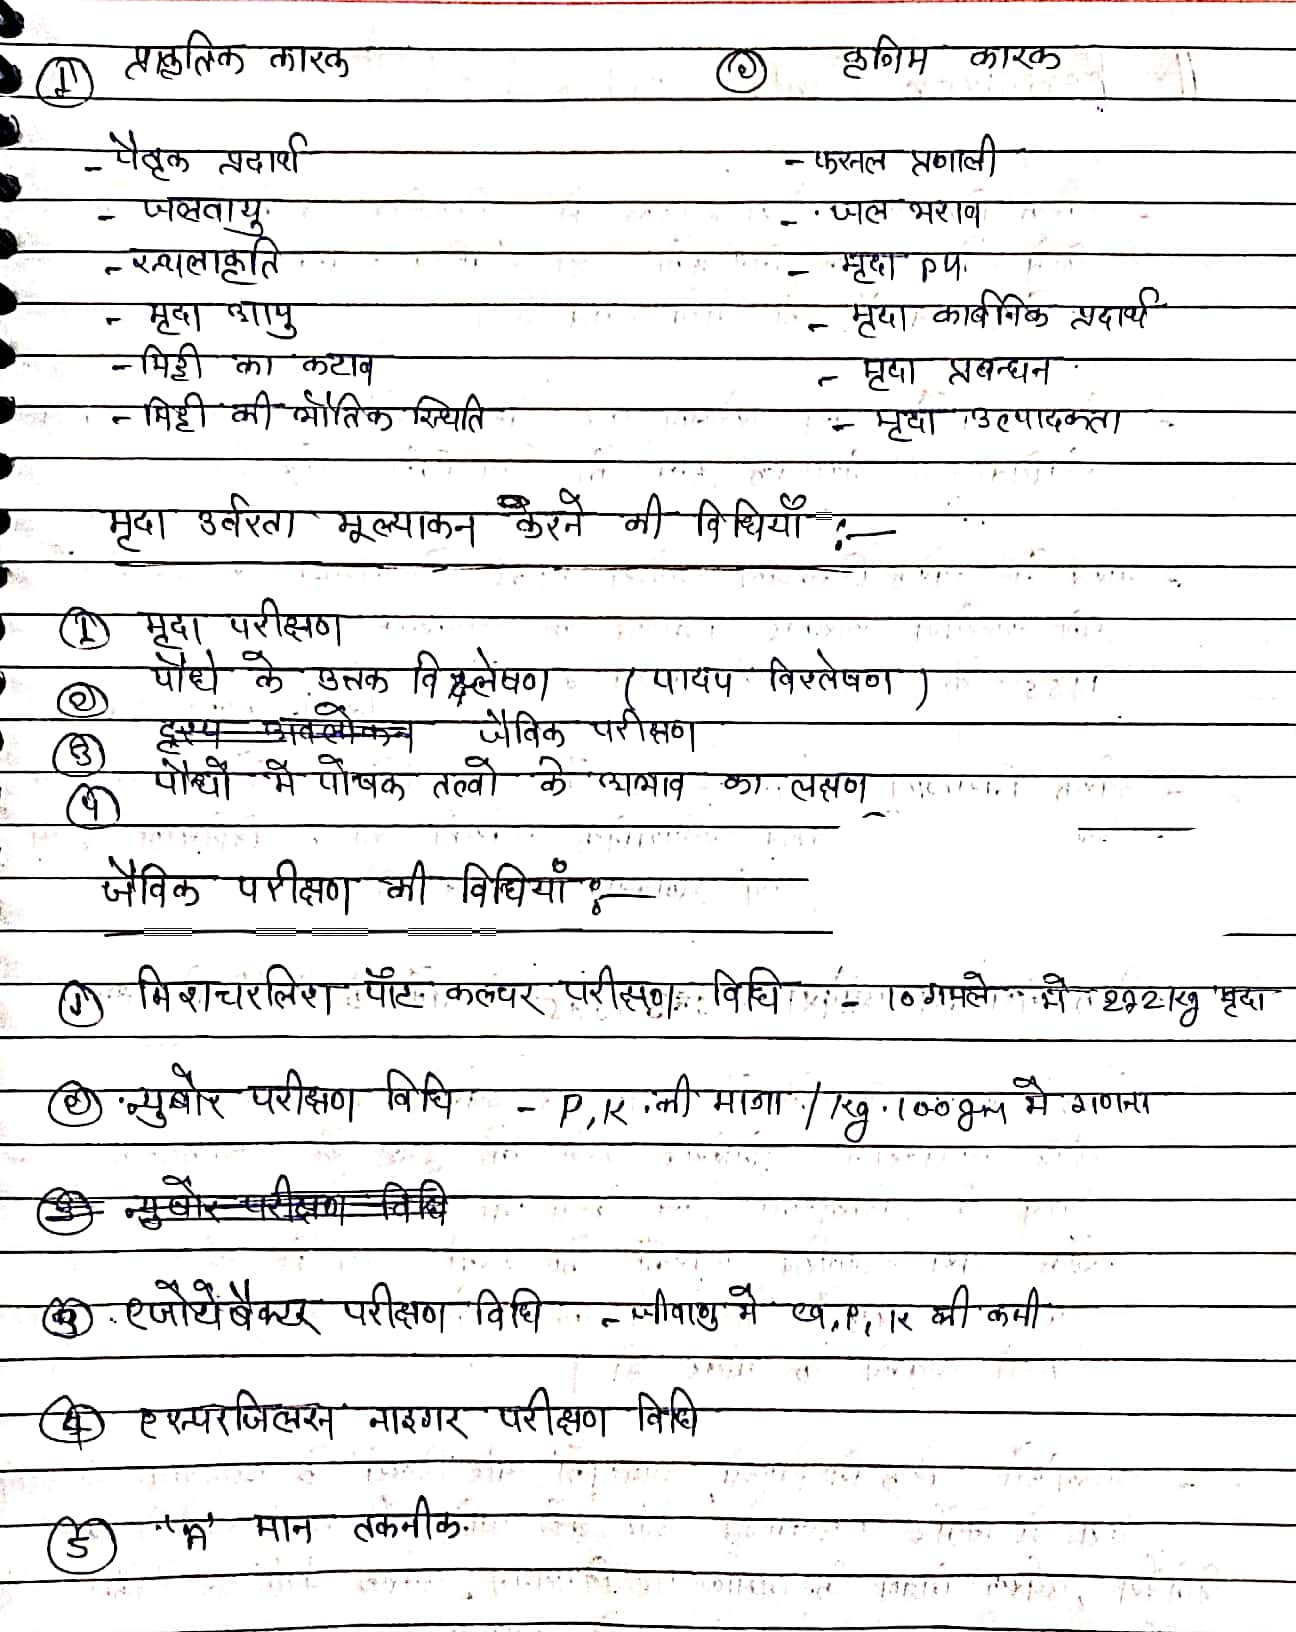 ① प्राकृतिक कारक ② कृत्रिम कारक
- पैतृक पदार्थ - फसल प्रणाली
- जलवायु - जल भराव
- स्थलाकृति - मृदा PH
- मृदा आयु - मृदा कार्बनिक पदार्थ
- मिट्टी का कटाव - मृदा प्रबन्धन
- मिट्टी की भौतिक स्थिति - मृदा उत्पादकता
मृदा उर्वरता मूल्याकन करने की विधियाँ :—
① मृदा परीक्षण
② पौधे के उत्तक विश्लेषण (पादप विश्लेषण)
③ दृश्य अवलोकन जैविक परीक्षण
④ पौधों में पोषक तत्वो के अभाव का लक्षण
जैविक परीक्षण की विधियाँ :—
① मिशचरलिश पॉट कल्चर परीक्षण विधि - 10 गमले में मृदा
② न्युबोर परीक्षण विधि - P, K की मात्रा / kg 100 gm मे गणना
③ न्युबोर परीक्षण विधि
③ एजोटोबैक्टर परीक्षण विधि - जीवाणु मे P, K की कमी
④ एस्परजिलस नाइगर परीक्षण विधि
⑤ 'A' मान तकनीक